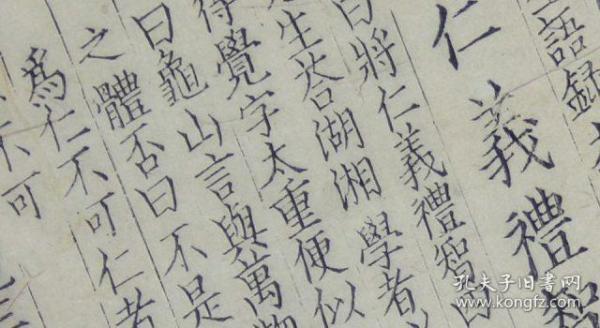 語録
仁義禮智
曰將仁義禮智
生荅湖湘學者
得覺字太重便似
曰龜山言與萬物
之體否曰不是
爲仁不可仁者
不可
孔夫子旧书网
www.kongfz.com